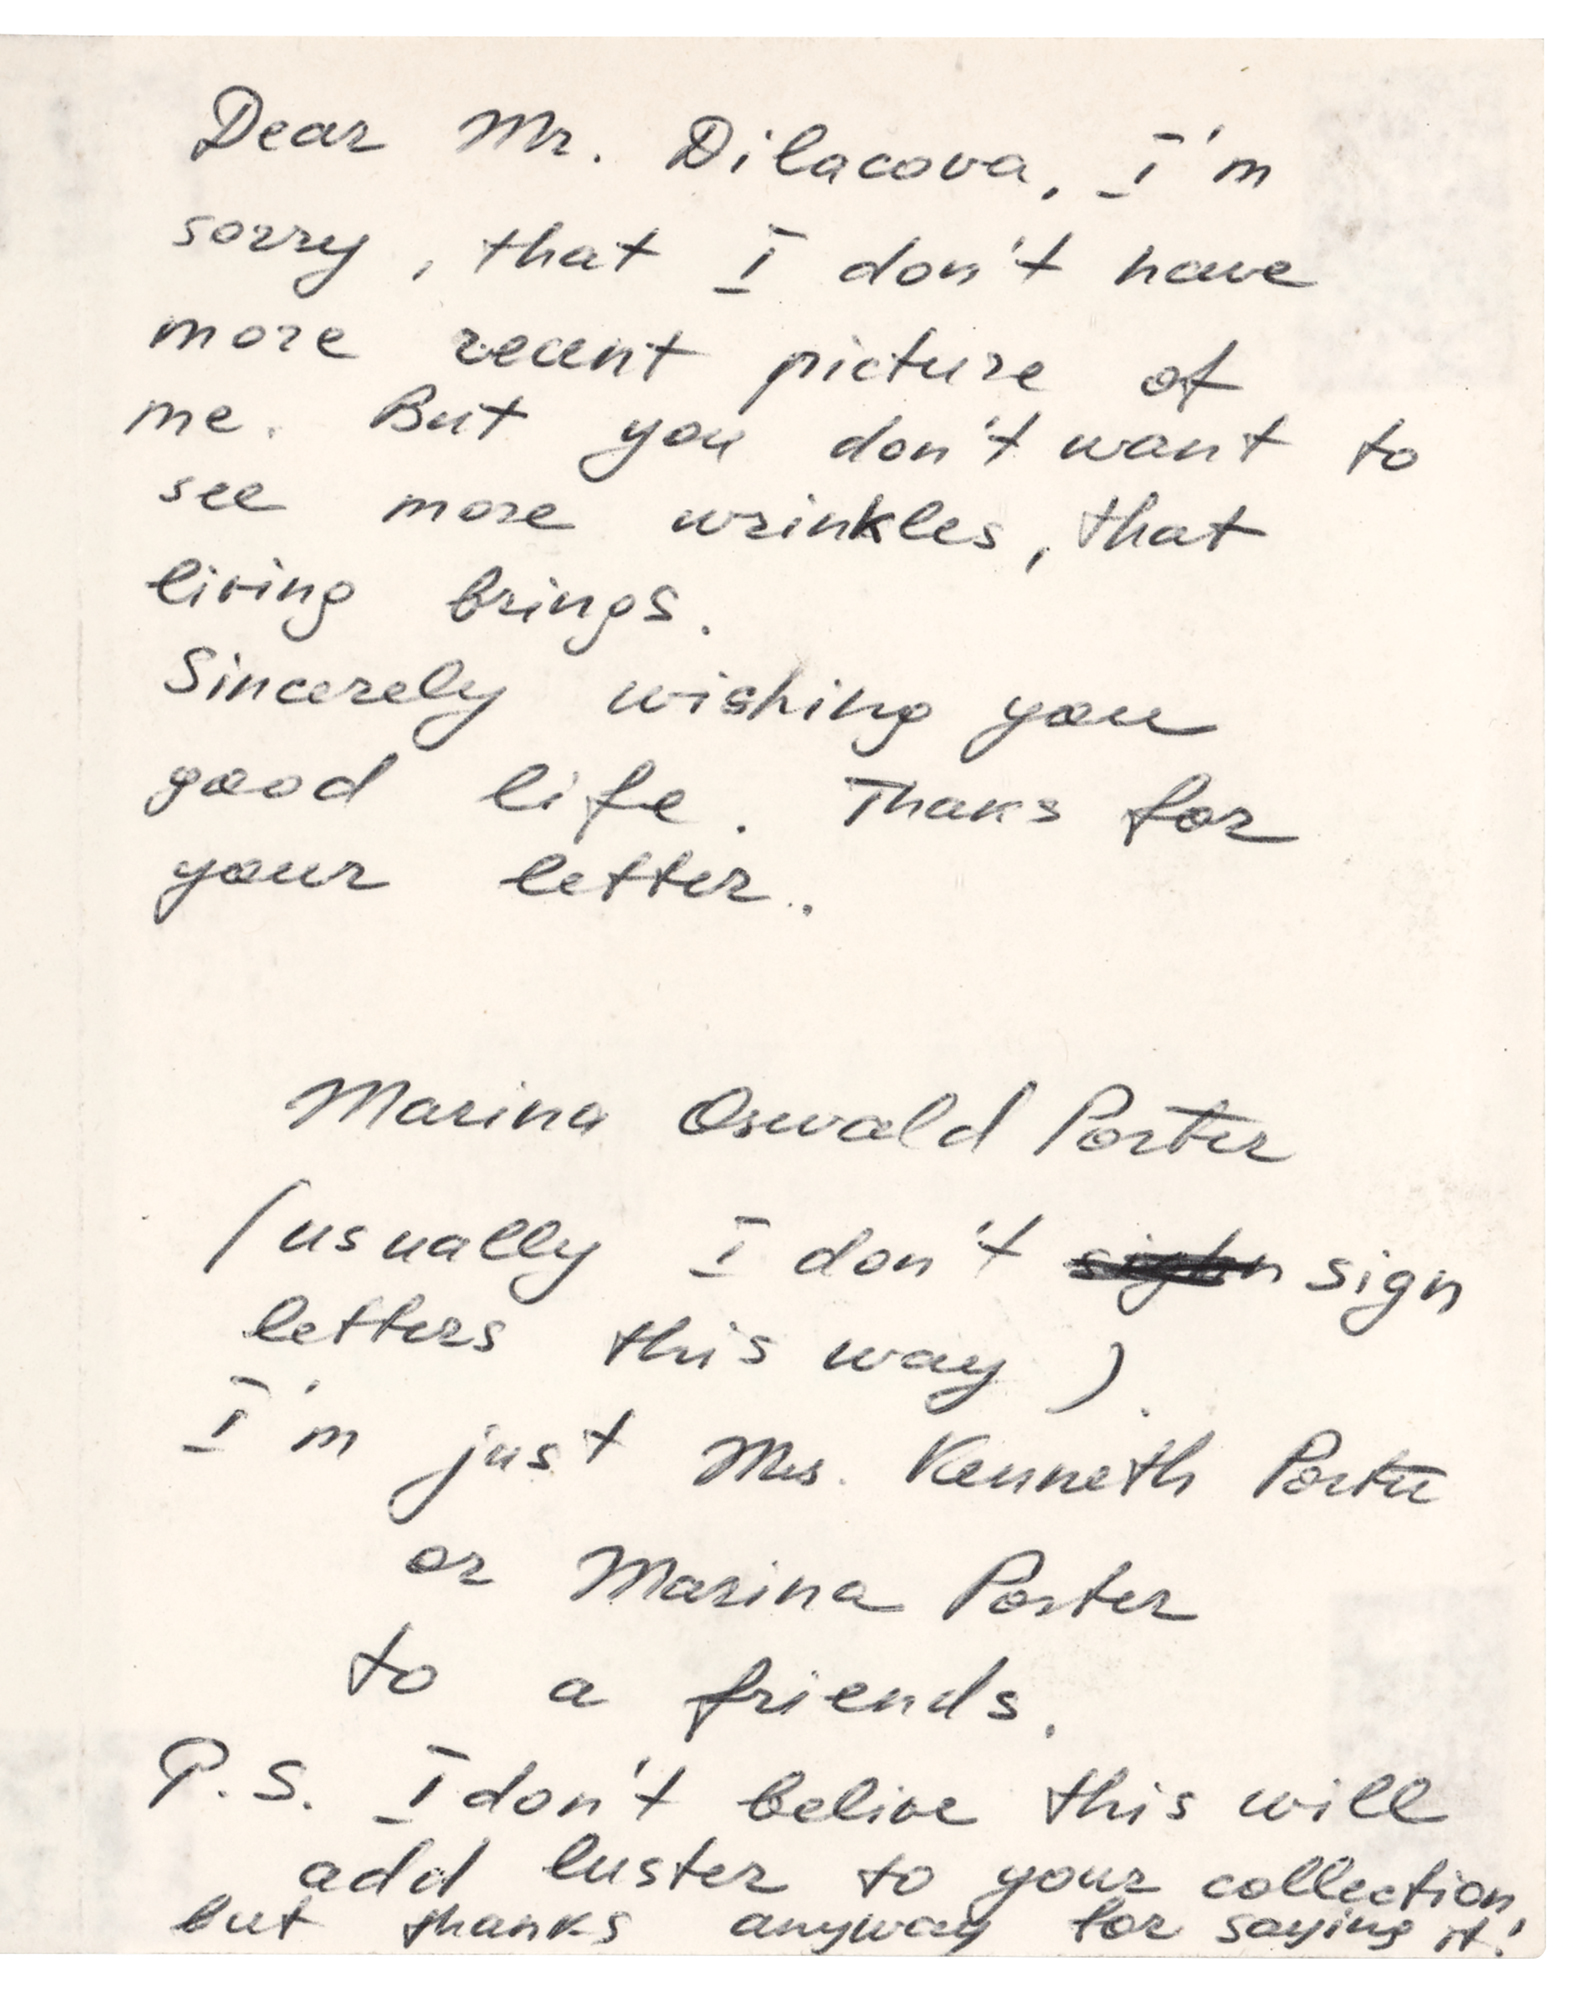 Dear Mr. Dilacova, I'm
sorry, that I don't have
more recent picture of
me. But you don't want to
see more wrinkles, that
living brings.
Sincerely wishing you
good life. Thanks for
your letter.
Marina Oswald Porter
(usually I don't sign
letters this way).
I'm just Mrs. Kenneth Porter
or Marina Porter
to a friends.
P.S. I don't belive this will
add luster to your collection,
but thanks anyway for saying it!